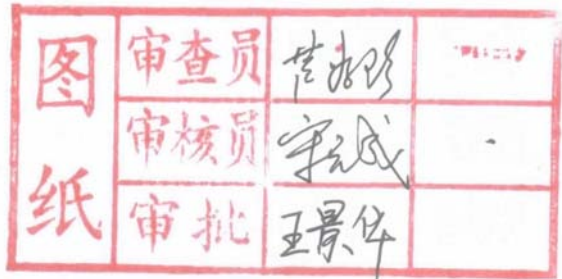 图纸
审查员
审核员 宋云成
审批 王景华